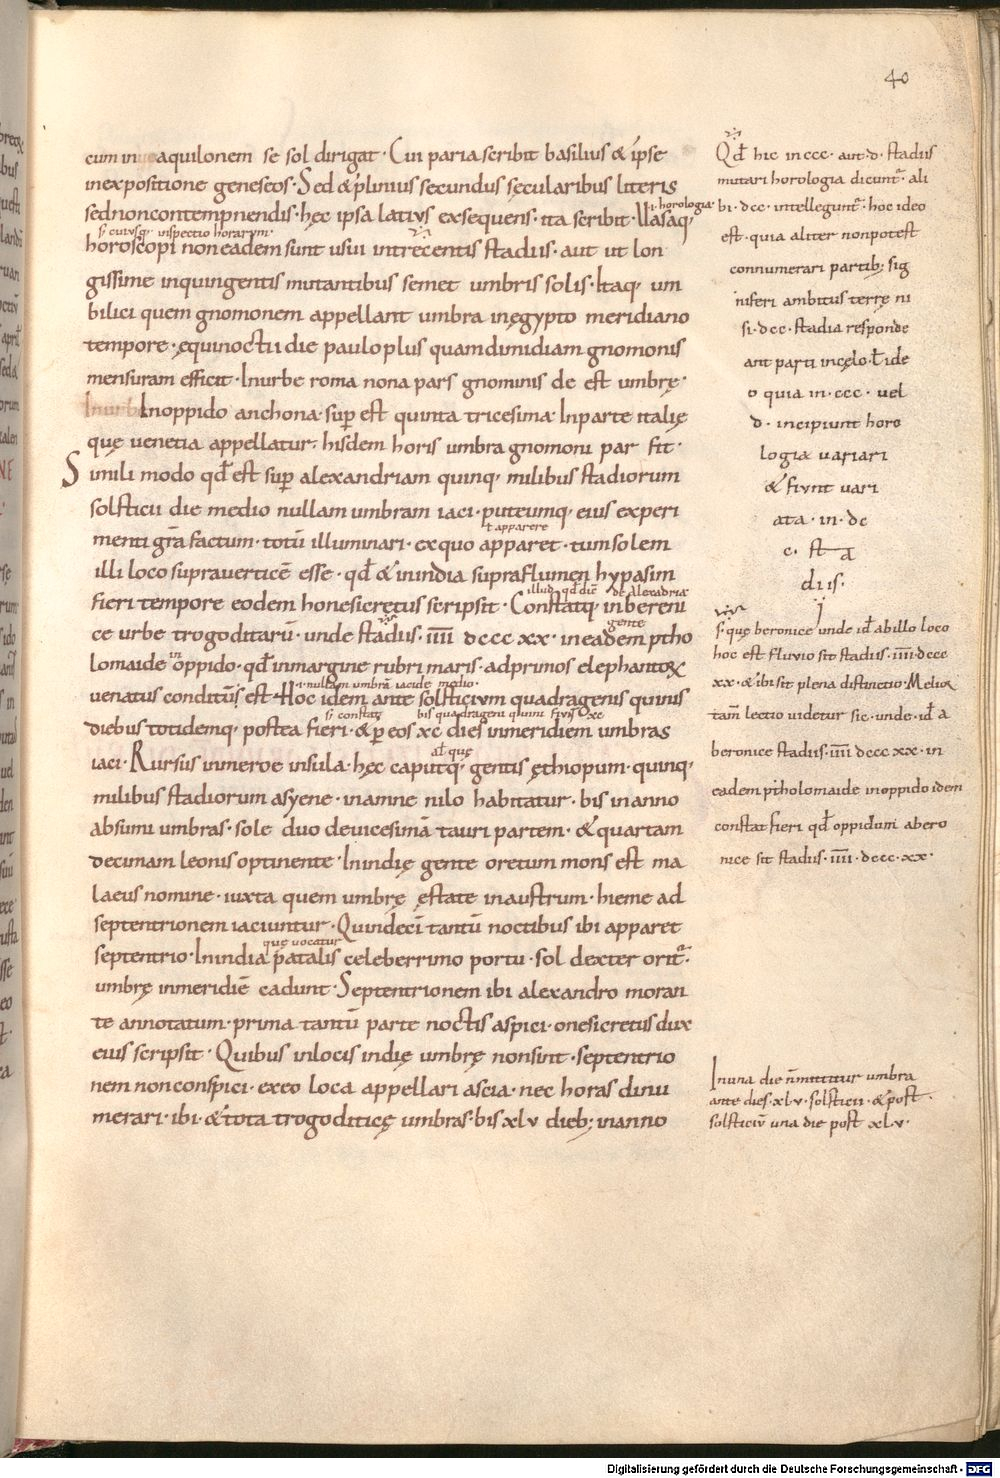 40
cum in aquilonem se sol dirigat · Cui paria scribit basilius & ipse
inexpositione geneseos · Sed & plinius secundus sęcularibus literis
sednoncontempnendis · hęc ipsa latius exsequens · ita scribit · Uasaq;
.i. horologia ·
s. cuiusq; inspectio horarum ·
horoscopi noneadem sunt usui intrecentis stadiis · aut ut lon
gissime inquingentis mutantibus semet umbris solis · Itaq; um
bilici quem gnomonem appellant umbra inęgypto meridiano
tempore · ęquinoctii die pauloplus quamdimidiam gnomonis
mensuram efficit · Inurbe roma nona pars gnominis de est umbrę ·
Inoppido anchona · suꝑ est quinta tricesima · Inparte italię
quę uenetia appellatur · hisdem horis umbra gnomoni par fit ·
Simili modo qđ est suꝑ alexandriam quinq; milibus stadiorum
solsticii die medio nullam umbram iaci · puteumq; eius experi
ł apparere
menti grā factum · totū illuminari · exquo apparet · tumsolem
illi loco supraverticē esse · qđ & inindia supraflumen hypasim
illud qđ diē de Alexadria
fieri tempore eodem honesicretus scripsit · Constatq; inbereni
gente
ce urbe trogoditarū · unde stadiis · īīīī dcccxx · ineadem ptho
in
lomaide oppido · qđ inmargine rubri maris · adprimos elephantoꝝ
.i. nullam umbrā iacide medio ·
uenatus conditū est · Hoc idem ante solsticium quadragenis quinis
s. constat bis quadrageni quini fiunt xc
diebus totidemq; postea fieri · & ꝑ eos xc dies inmeridiem umbras
ał que
iaci · Rursus inmeroe insula · hęc caputq; gentis ęthiopum · quinq;
milibus stadiorum asyene · inamne nilo habitatur · bis inanno
absumi umbras · sole duo deuicesimā tauri partem · & quartam
decimam leonis optinente · Inindię gente oretum mons est ma
laeus nomine · iuxta quem umbrę ęstate inaustrum · hieme ad
septentrionem iaciuntur · Quindecī tantū noctibus ibi apparet
quę uocatur
septentrio · Inindia patalis celeberrimo portu · sol dexter orit̄ ·
umbrę inmeridiē cadunt · Septentrionem ibi alexandro moran
te annotatum · prima tantū parte noctis aspici · onesicretus dux
eius scripsit · Quibus inlocis indię umbrę nonsint · septentrio
nem nonconspici · exeo loca appellari ascia · nec horas dinu
merari · ibi · & tota trogoditicę umbras · bis xlv dieb; inanno
Qđ hic inccc · aut · d · stadiis
mutari horologia dicunt̄ · ali
bi · dcc · intellegunt̄ · hoc ideo
est · quia aliter nonpotest
connumerari partib; sig
niferi ambitus terrę ni
si · dcc · stadia responde
ant parti incęlo · ł ide
o quia in · ccc · vel
d · incipiunt horo
logia uariari
& fiunt uari
ata · in · dc
c · sta
diis ·
s. quę beronice unde id̄ abillo loco
hoc est fluvio sit stadiis · īīīī · dccc
xx · & ibi sit plena distinctio · Melioꝝ
tam̄ lectio uidetur sic · unde · id̄ a
beronice stadiis · īīīī dccc xx · in
eadem ptholomaide inoppido idem
constat fieri qđ oppidum abero
nice sit stadiis · īīīī · dccc · xx ·
Inuna die n̄mittitur umbra
ante dies · xlv · solsticii · & post ·
solsticiū una die post xlv ·
Digitalisierung gefördert durch die Deutsche Forschungsgemeinschaft - DFG